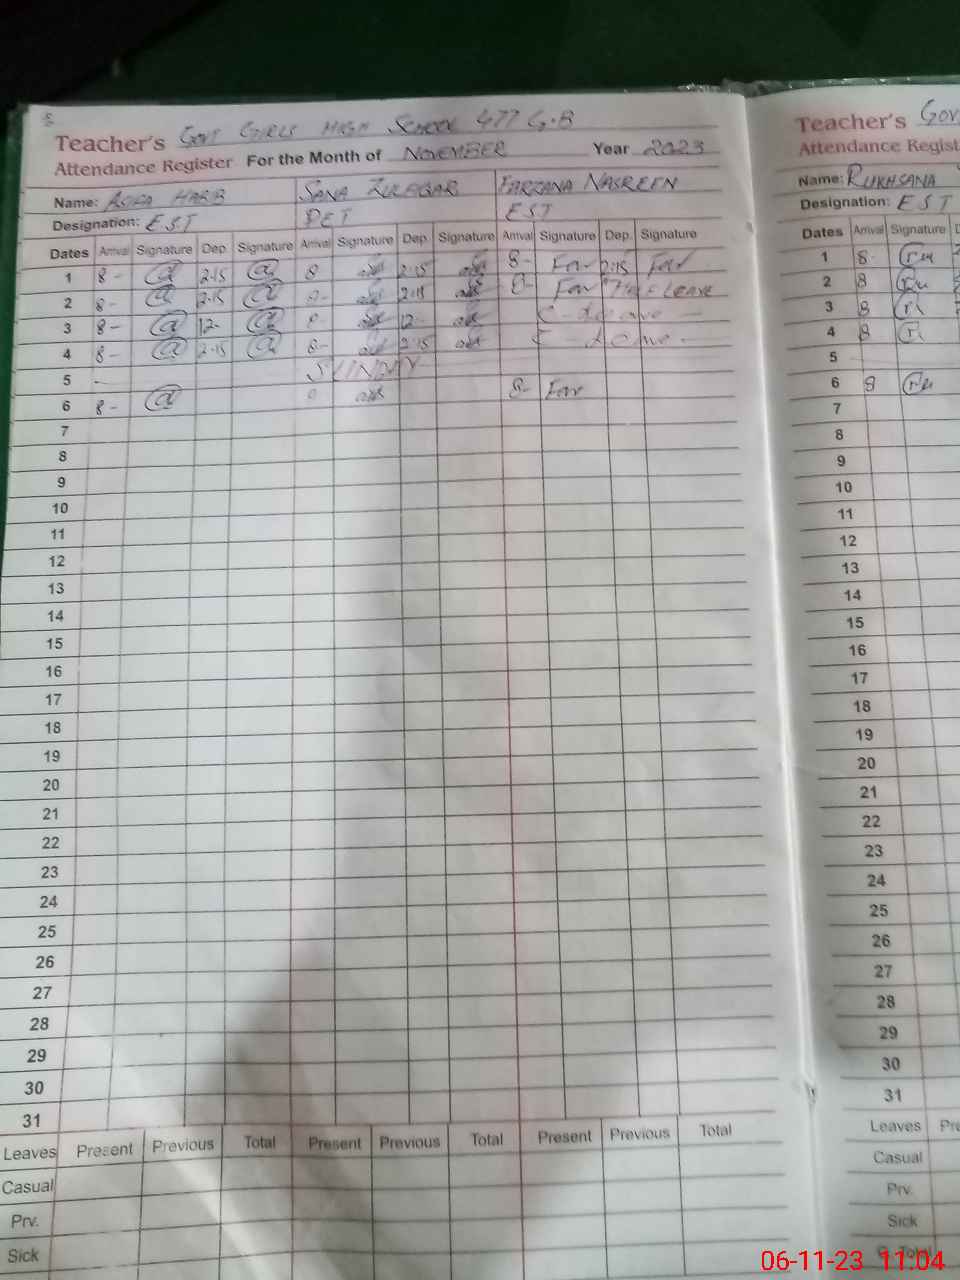 Teacher's GOVT GIRLS HIGH SCHOOL 477 G.B
Attendance Register For the Month of NOVEMBER Year 2023
Name: SANA FARZANA NASREEN
Designation: EST PET EST
Dates Arrival Signature Dep. Signature Arrival Signature Dep. Signature Arrival Signature Dep. Signature
1 8- @ 2-15 @ 8 2-15 8- Far 2:15 Far
2 8- @ 2-15 @ 2-15 8- Far Half Leave
3 8- @ 12- @ 12- C-Leave -
4 8- @ 2-15 @ 8- 2-15 C-Leave -
5 - SUNDAY
6 8- @ 8- Far
7
8
9
10
11
12
13
14
15
16
17
18
19
20
21
22
23
24
25
26
27
28
29
30
31
Leaves Present Previous Total Present Previous Total Present Previous Total
Casual
Prv.
Sick
Teacher's
Attendance
Name: RUKHSANA
Designation: EST
Dates Arrival Signature
1 8-
2 8
3 8
4 8
5
6 8
7
8
9
10
11
12
13
14
15
16
17
18
19
20
21
22
23
24
25
26
27
28
29
30
31
Leaves
Casual
Prv.
Sick
06-11-23 11:04